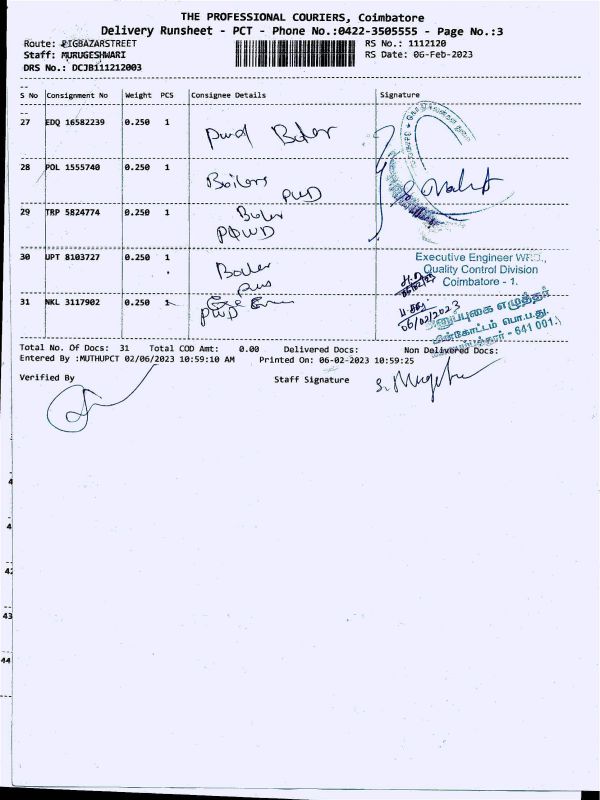 THE PROFESSIONAL COURIERS, Coimbatore
Delivery Runsheet - PCT - Phone No.:0422-3505555 - Page No.:3
Route: BIGBAZARSTREET
RS No.: 1112120
Staff: MURUGESHWARI
RS Date: 06-Feb-2023
DRS No.: DCJB111212003
S No Consignment No Weight PCS Consignee Details Signature
27 EDQ 16582239 0.250 1
28 POL 1555740 0.250 1
Boilers
PWD
29 TRP 5824774 0.250 1
30 UPT 8103727 0.250 1
Executive Engineer WRD.,
Quality Control Division
Coimbatore - 1.
31 NKL 3117902 0.250 1
PWD
06/02/2023
அனுப்புகை எழுத்தர்
மின்கோட்டம் பொ.ப.து.
641 001.
Total No. Of Docs: 31 Total COD Amt: 0.00 Delivered Docs: Non Delivered Docs:
Entered By :MUTHUPCT 02/06/2023 10:59:10 AM Printed On: 06-02-2023 10:59:25
Verified By Staff Signature
43
44